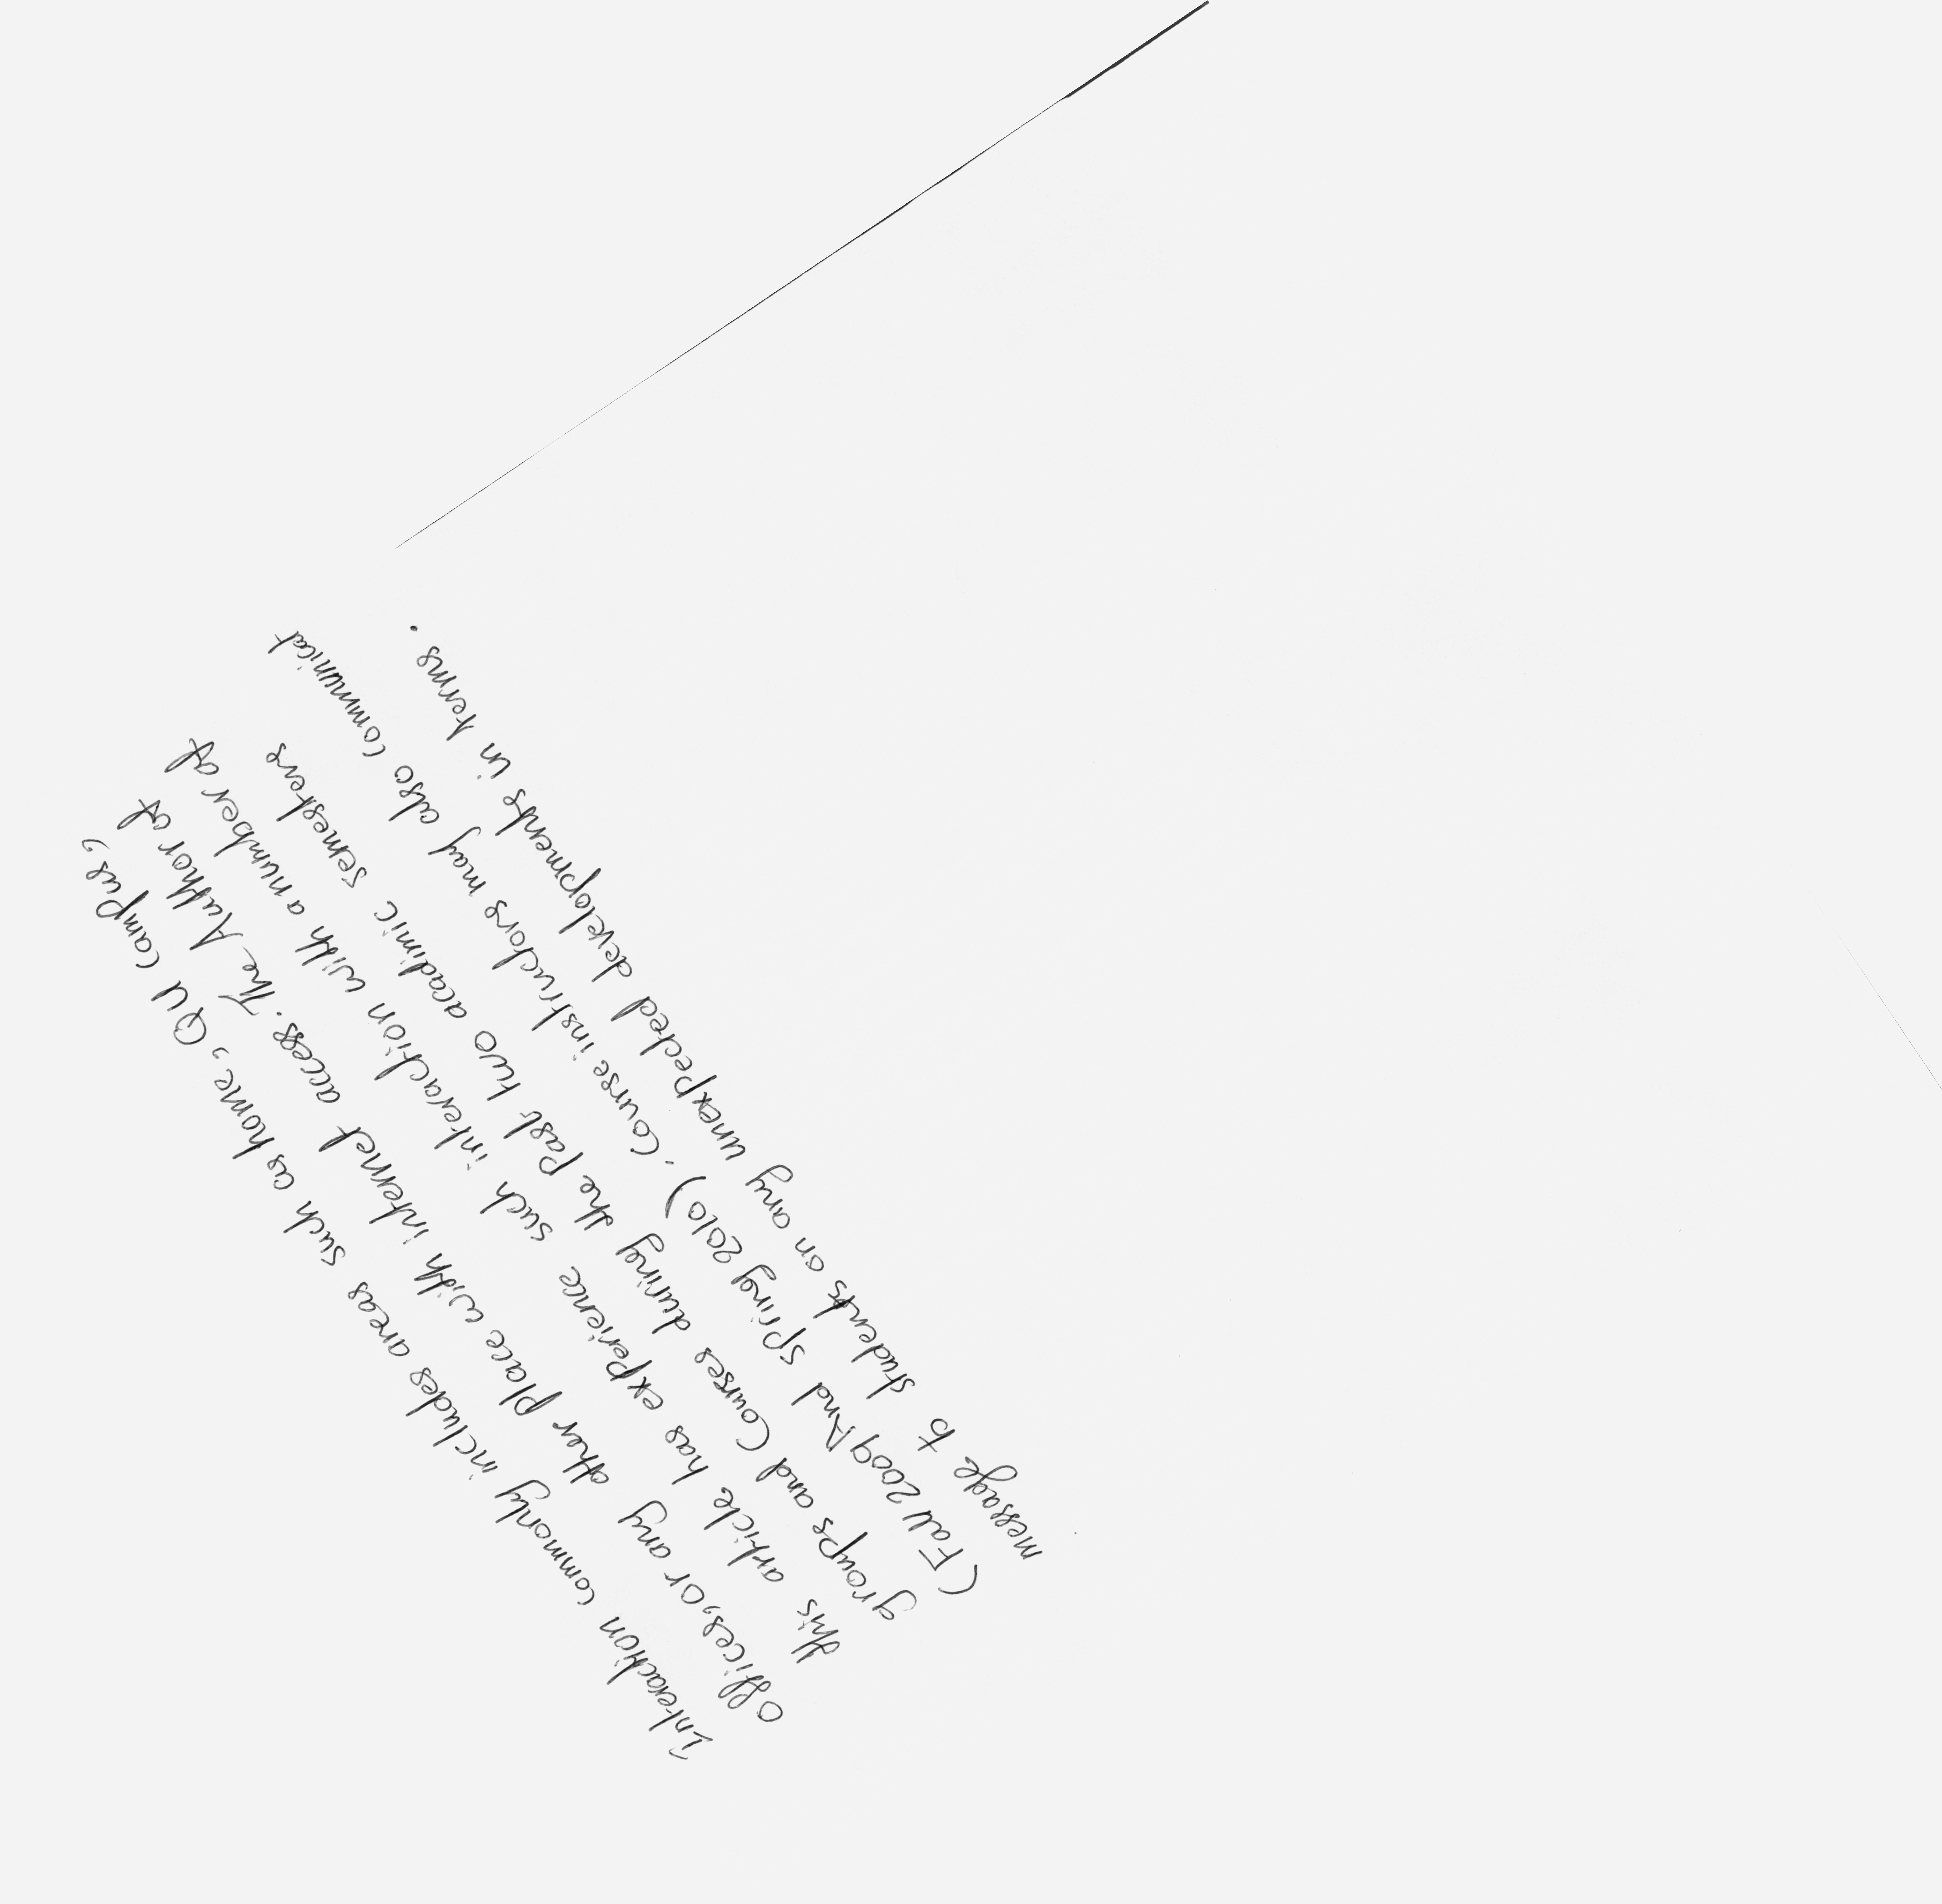 Interaction commonly includes areas such as home, QU campus,
Offices, or any other place with internet access. The Author of
this article has experience such interaction with a number of
groups and Courses during the past two acadimic semesters
(Fall 2009 And spring 2010). Course instructors may also communicat
message to students on any unexpected developments in terms.